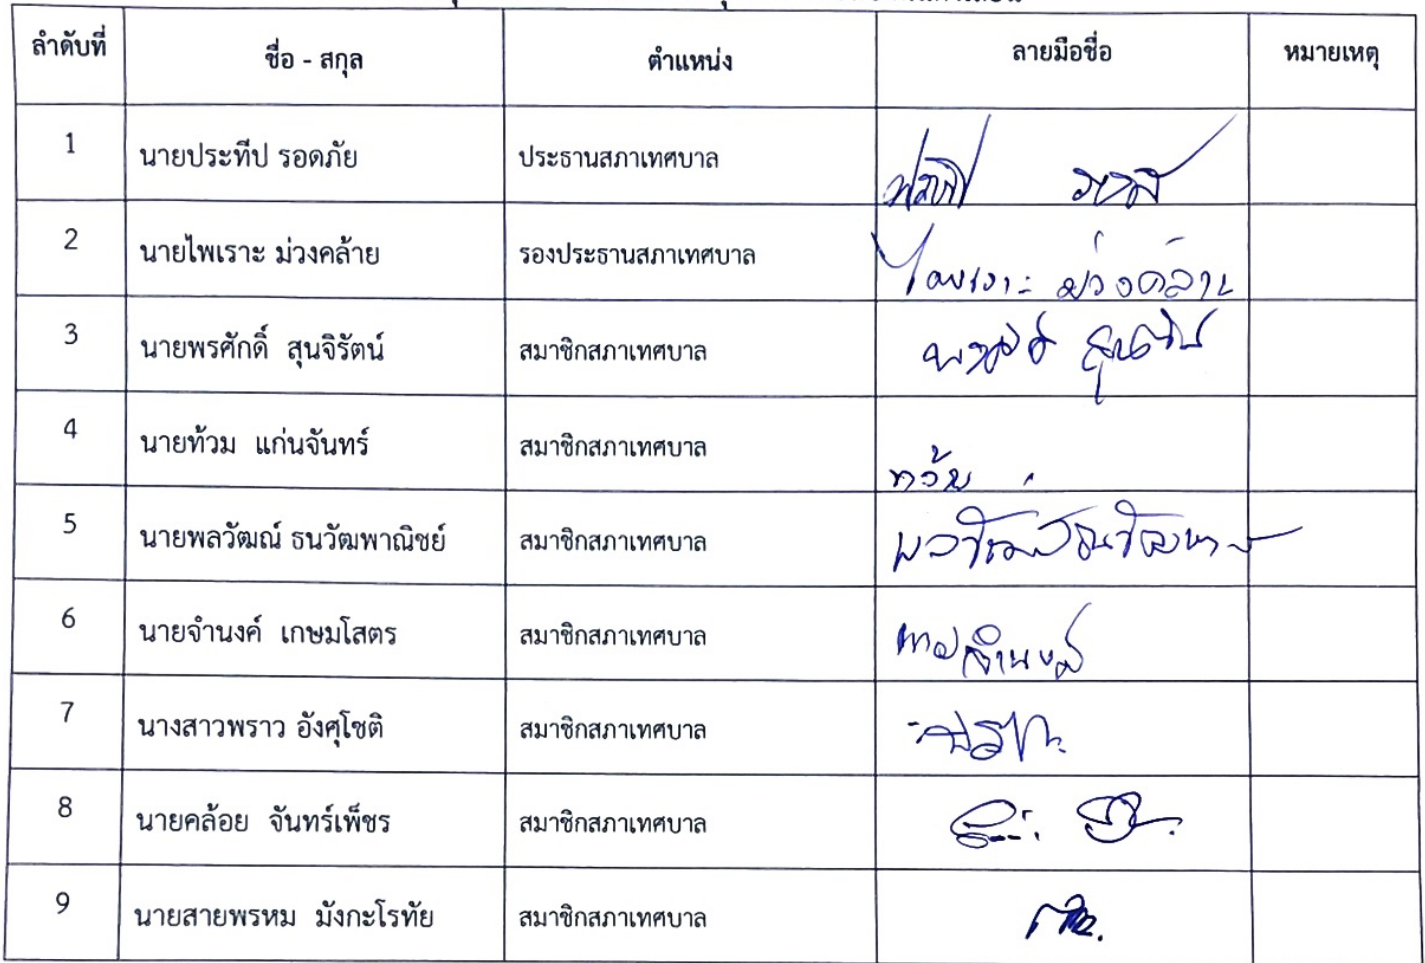 ลำดับที่ ชื่อ - สกุล ตำแหน่ง ลายมือชื่อ หมายเหตุ
1 นายประทีป รอดภัย ประธานสภาเทศบาล
2 นายไพเราะ ม่วงคล้าย รองประธานสภาเทศบาล ไพเราะ ม่วงคล้าย
3 นายพรศักดิ์ สุนจิรัตน์ สมาชิกสภาเทศบาล
4 นายท้วม แก่นจันทร์ สมาชิกสภาเทศบาล
5 นายพลวัฒณ์ ธนวัฒพาณิชย์ สมาชิกสภาเทศบาล
6 นายจำนงค์ เกษมโสตร สมาชิกสภาเทศบาล
7 นางสาวพราว อังศุโชติ สมาชิกสภาเทศบาล
8 นายคล้อย จันทร์เพ็ชร สมาชิกสภาเทศบาล
9 นายสายพรหม มังกะโรทัย สมาชิกสภาเทศบาล